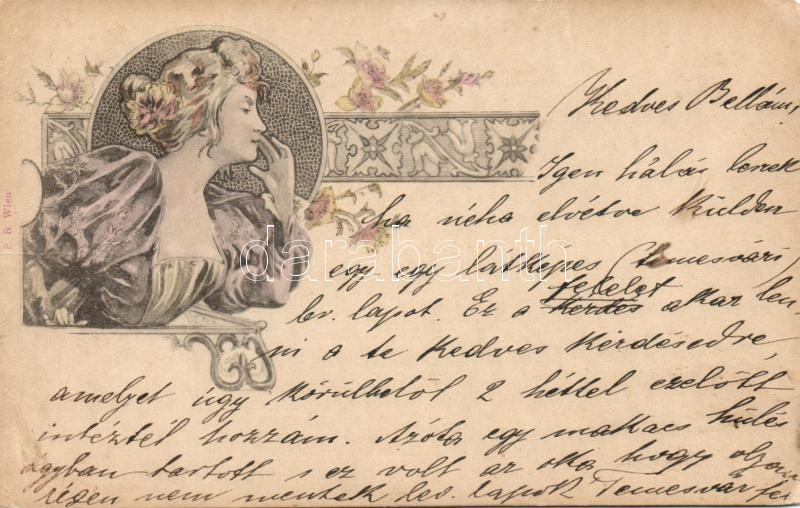 Kedves Bellám,
Igen hálás lennék
ha néha elvétve küldesz
egy egy látképes (temesvári)
lev. lapot. Ez a felelet
kérdés akar len-
ni a te kedves kérdésedre,
amelyet úgy körülbelöl 2 héttel ezelőtt
intéztél hozzám. Azóta egy makacs hülés
ágyban tartott s ez volt az oka hogy olyan
régen nem mentek lev. lapok Temesvár
E. B. Wien
darabanth